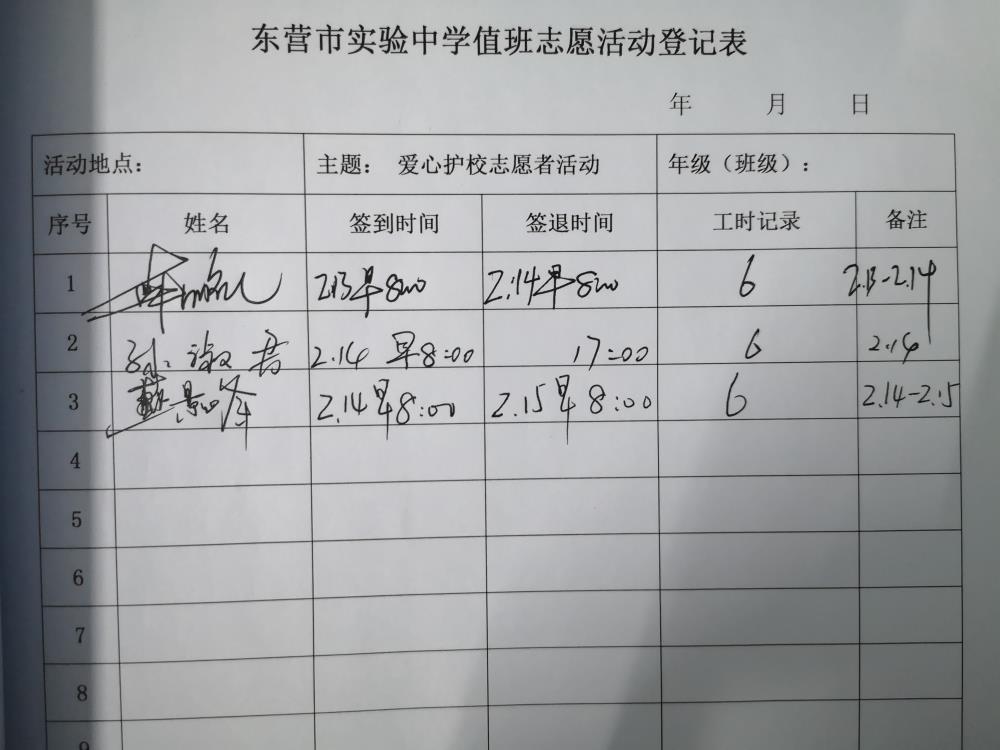 东营市实验中学值班志愿活动登记表
年 月 日
活动地点： 主题： 爱心护校志愿者活动 年级（班级）：
序号 姓名 签到时间 签退时间 工时记录 备注
1 2.13早8:00 2.14早8:00 6 2.13-2.14
2 孙淑君 2.14 早8:00 17:00 6 2.14
3 2.14早8:00 2.15早8:00 6 2.14-2.15
4
5
6
7
8
9